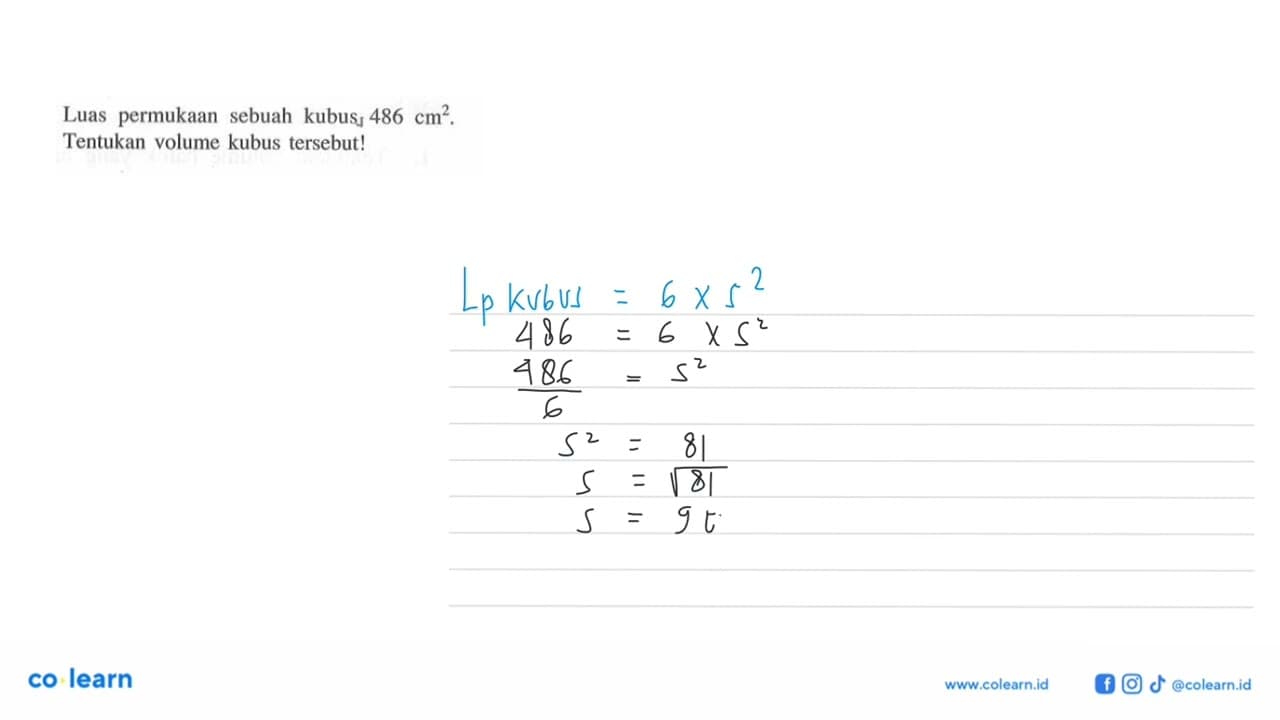 Luas permukaan sebuah kubus, 486 cm².
Tentukan volume kubus tersebut!
Lp kubus = 6 x s²
486 = 6 x s²
486/6 = s²
s² = 81
s = √81
s = 9
co learn
www.colearn.id
@colearn.id